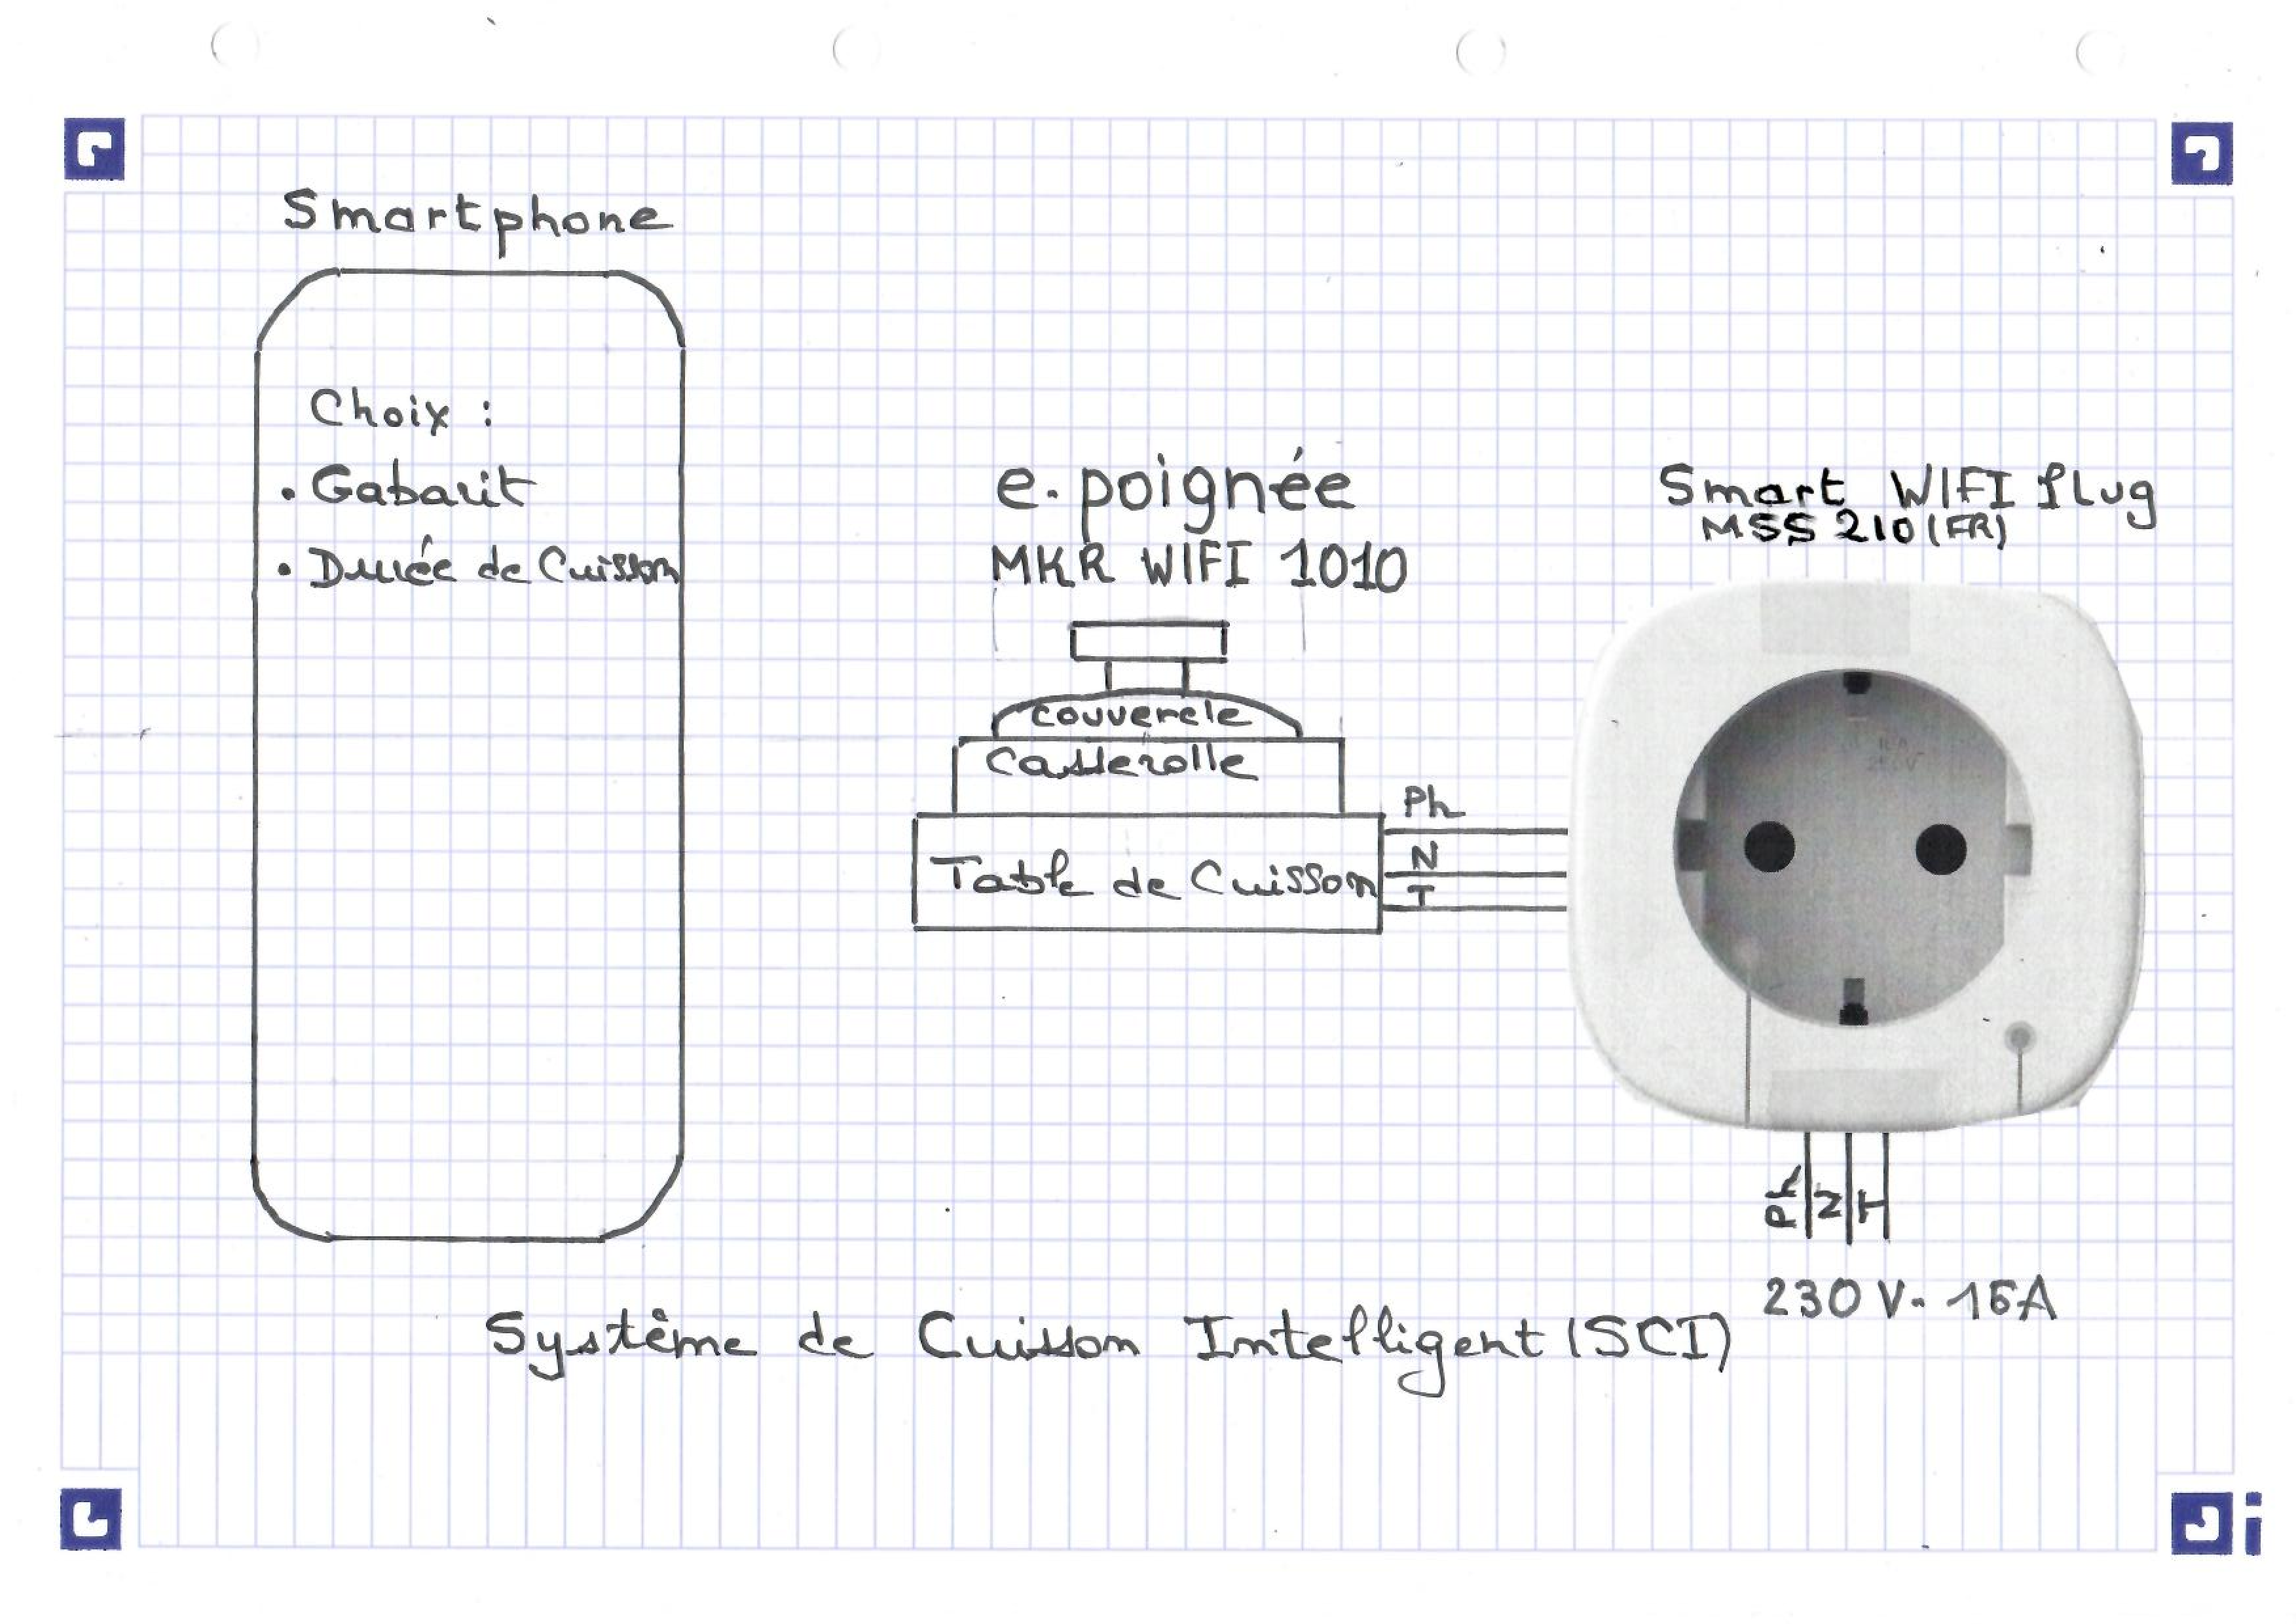 Smartphone
Choix :
. Gabarit
. Durée de Cuisson
e.poignée
MKR WIFI 1010
couvercle
Casserolle
Table de Cuisson
Ph
N
T
Smart WIFI Plug
MSS 210 (FR)
Ph
N
T
230 V- 16A
Système de Cuisson Intelligent (SCI)